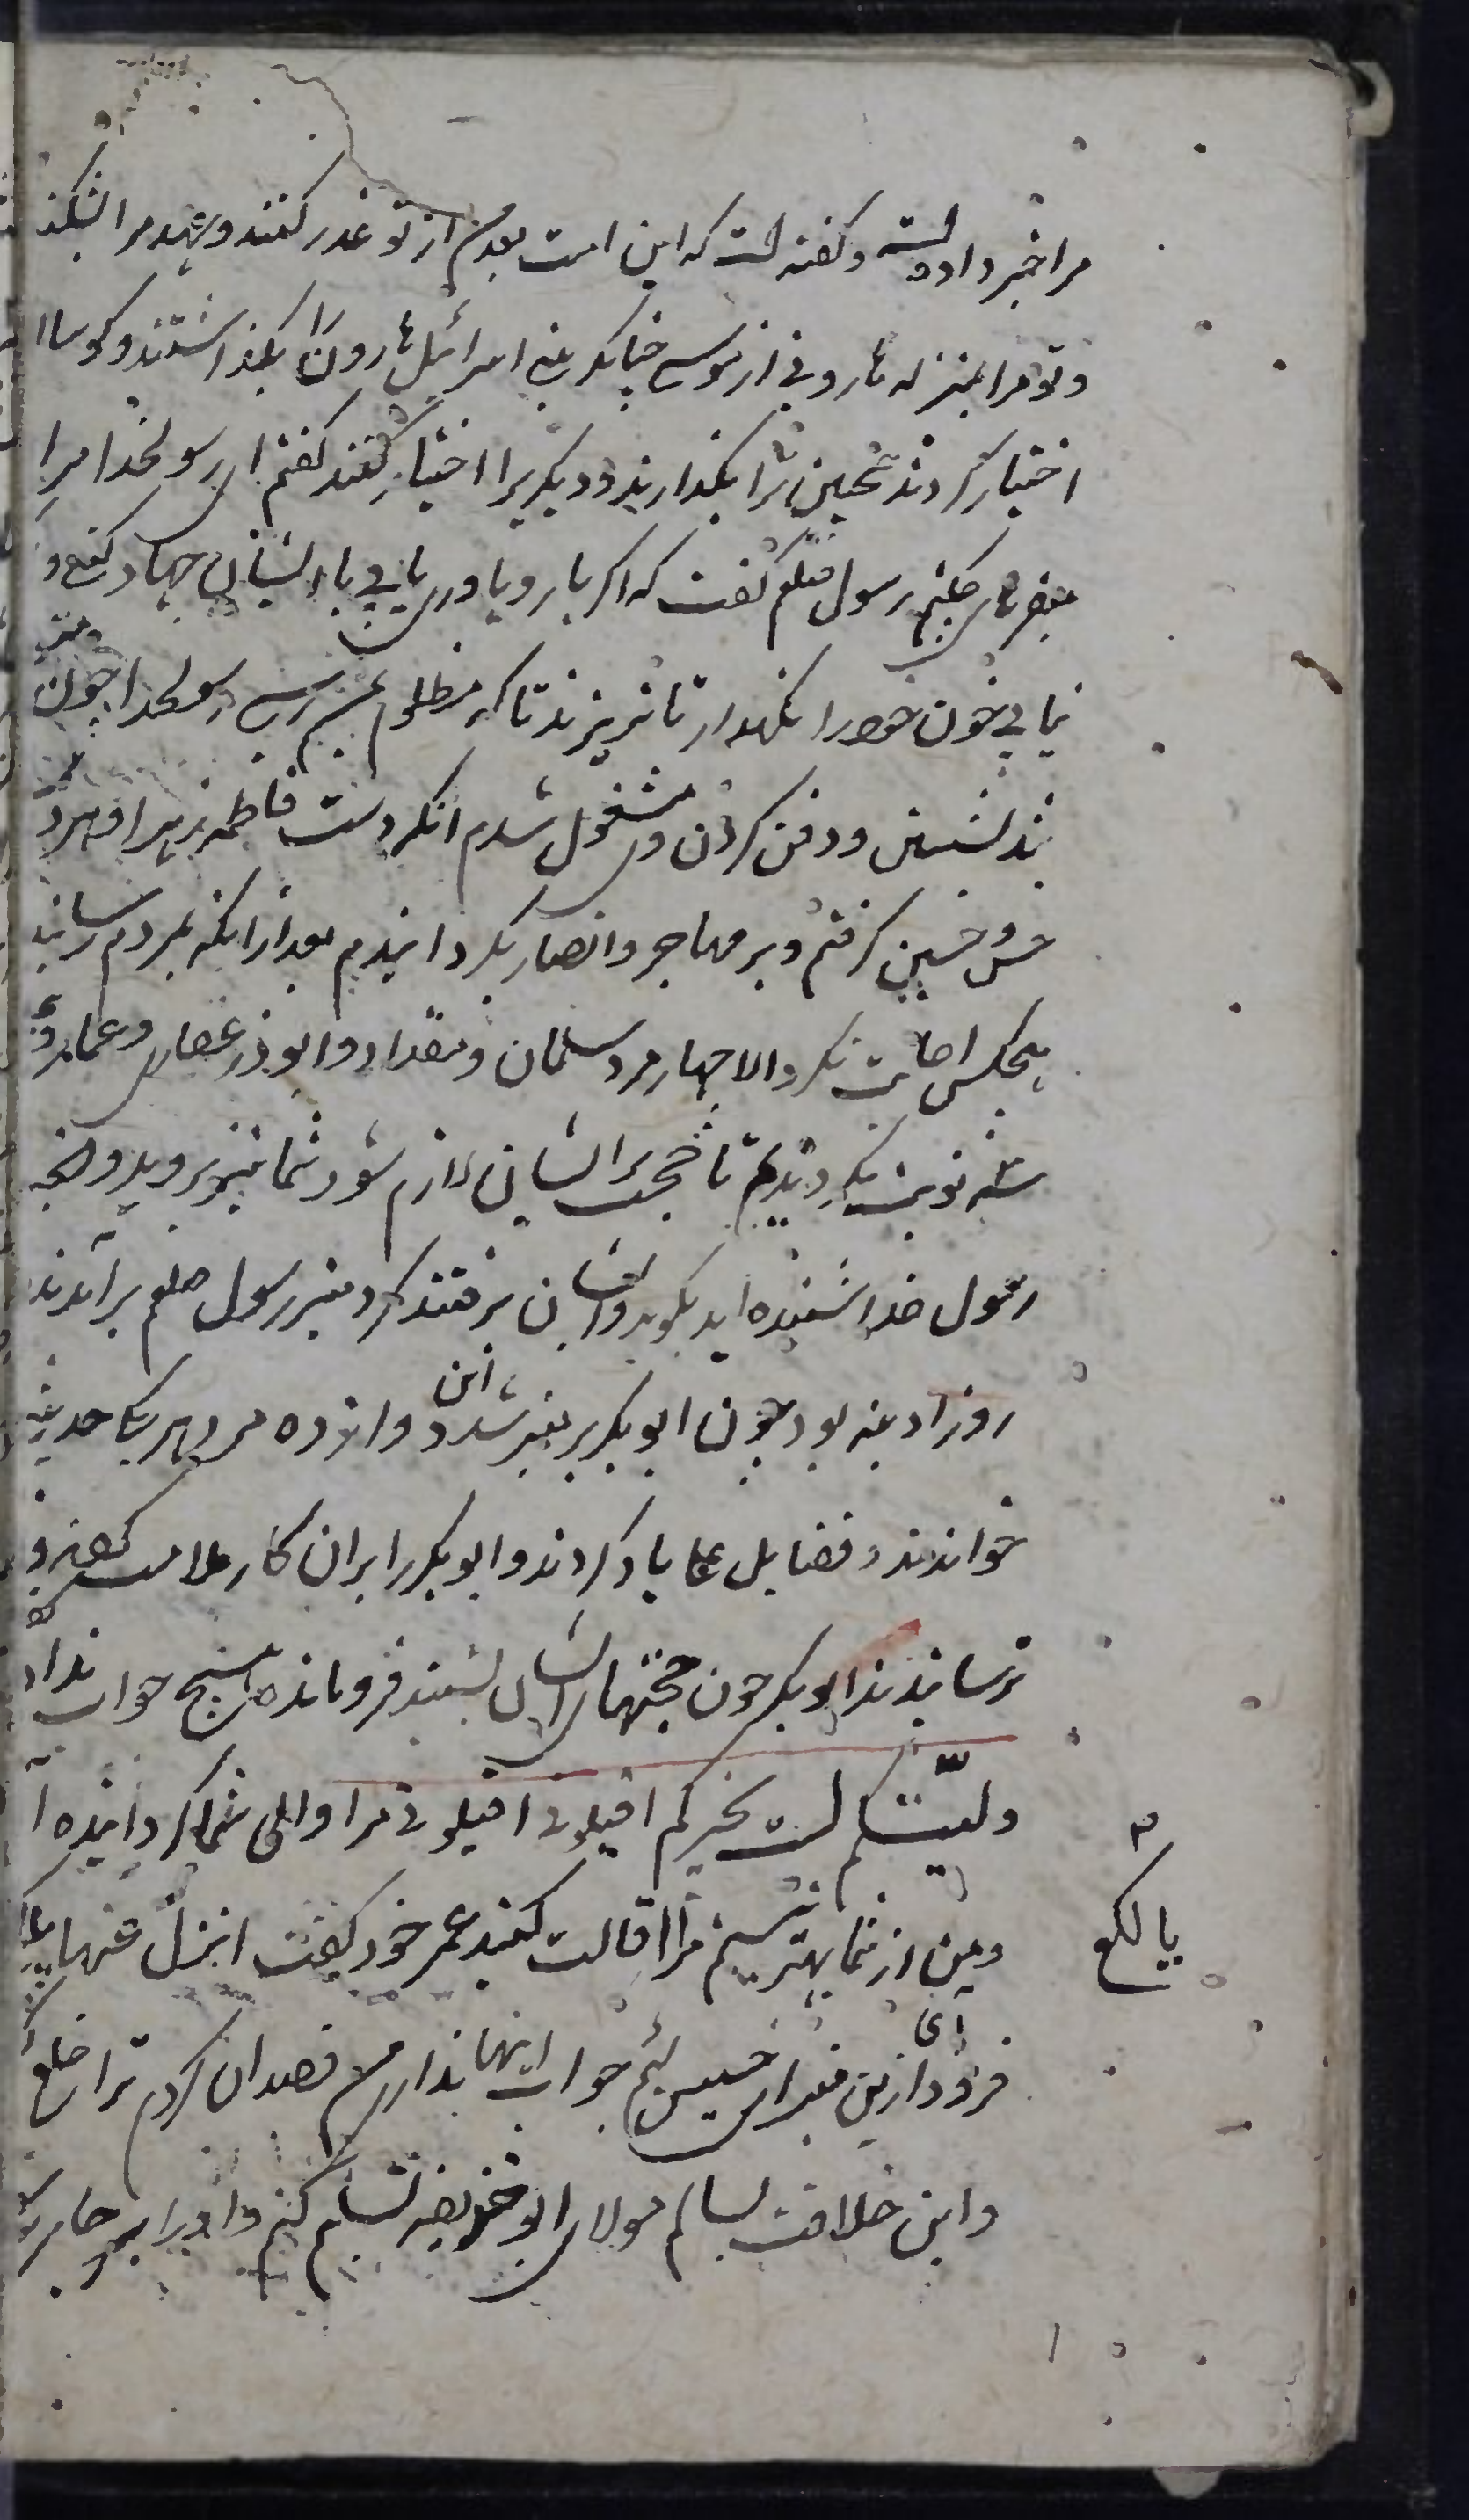 مرا خبر داده است و گفته است که این امت بعد من از تو غدر کنند و عهد مرا بشکنند
و تو مرا بمنزله هارونی از موسی چنانکه بنی اسرائیل هارون را بگذاشتند و کوساله
اختیار کردند همچنین ترا بگذارند و دیگریرا اختیار کنند گفتم ای رسولخدا مرا
میفرمای چکنم رسول صلعم گفت که اگر یار و یاور یابی با ایشان جهاد کن و
نیابی خون خود را نگهدار تا نریزند تا که مظلوم بمن رسی رسولخدا چون
بشستن و دفن کردن وی مشغول شدم انکه دست فاطمه زهرا و هر دو
حسن و حسین گرفتم و بر مهاجر و انصار بگردانیدم بعد ازانکه بمردم رسانید
هیچکس اجابت نکرد الا چهار مرد سلمان و مقداد و ابوذر غفاری و عمار و
سه نوبت بگردیدم تا حجت بر ایشان لازم شود شما نیز بروید و انچه
رسول خدا شنیده اید بگوید و ایشان برفتند کرد منبر رسول صلعم برآمدند
روز ادینه بود چون ابوبکر بر منبر شد این دوازده مرد هر یک حدیثی
خواندند و فضایل علی یاد کردند و ابوبکر را بران کار ملامت کردند و
ترسانیدند ابوبکر چون حجتهای ایشان بشنید فروماند هیچ جواب نداد
ولیتکم لست بخیرکم اقیلونی اقیلونی مرا والی شما گردانیده
و من از شما بهتر نیستم مرا اقالت کنید عمر خود گفت انزل عنها یا
یا لکع
فرود آی ازین منبر ای خسیس لئیم جواب اینها نداری من قصد ان کردم ترا خلع
و این خلافت بسالم مولای ابو حذیفه تسلیم کنم و او را بر جای